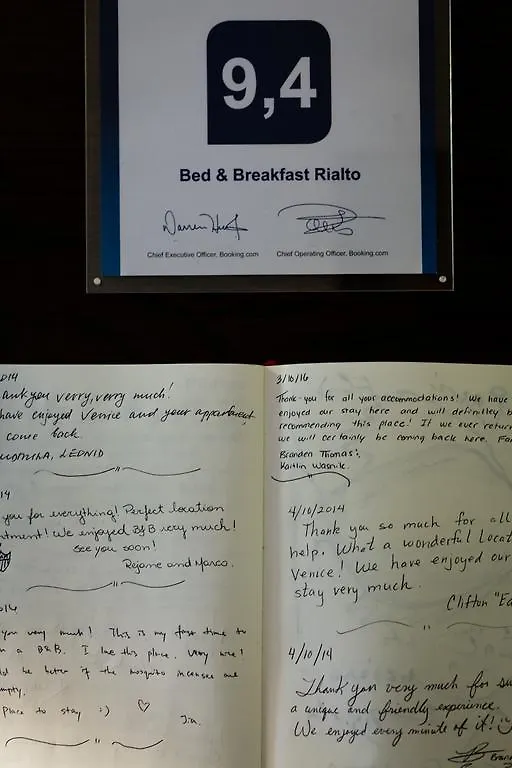 9,4
Bed & Breakfast Rialto
Chief Executive Officer, Booking.com
Chief Operating Officer, Booking.com
ank you verry, verry much!
have enjoyed Venice and your appartment
come back.
LEONID
14
you for everything! Perfect location
ntment! We enjoyed B&B very much!
see you soon!
Rejane and Marco.
you very much! This is my first time to
n a B&B. I like this place. Very nice!
ld be better if the mosquito incense are
mpty.
Place to stay :) ♡
Jin.
3/10/16
Thank you for all your accommodations! We have
enjoyed our stay here and will definitley b
recommending this place! If we ever retur
we will certainly be coming back here. Fa
Branden Thomas
Kaitlin
4/10/2014
Thank you so much for all
help. What a wonderful locat
Venice! We have enjoyed our
stay very much.
Clifton "Ea
4/10/14
Thank you very much for su
a unique and friendly experience.
We enjoyed every minute of it!